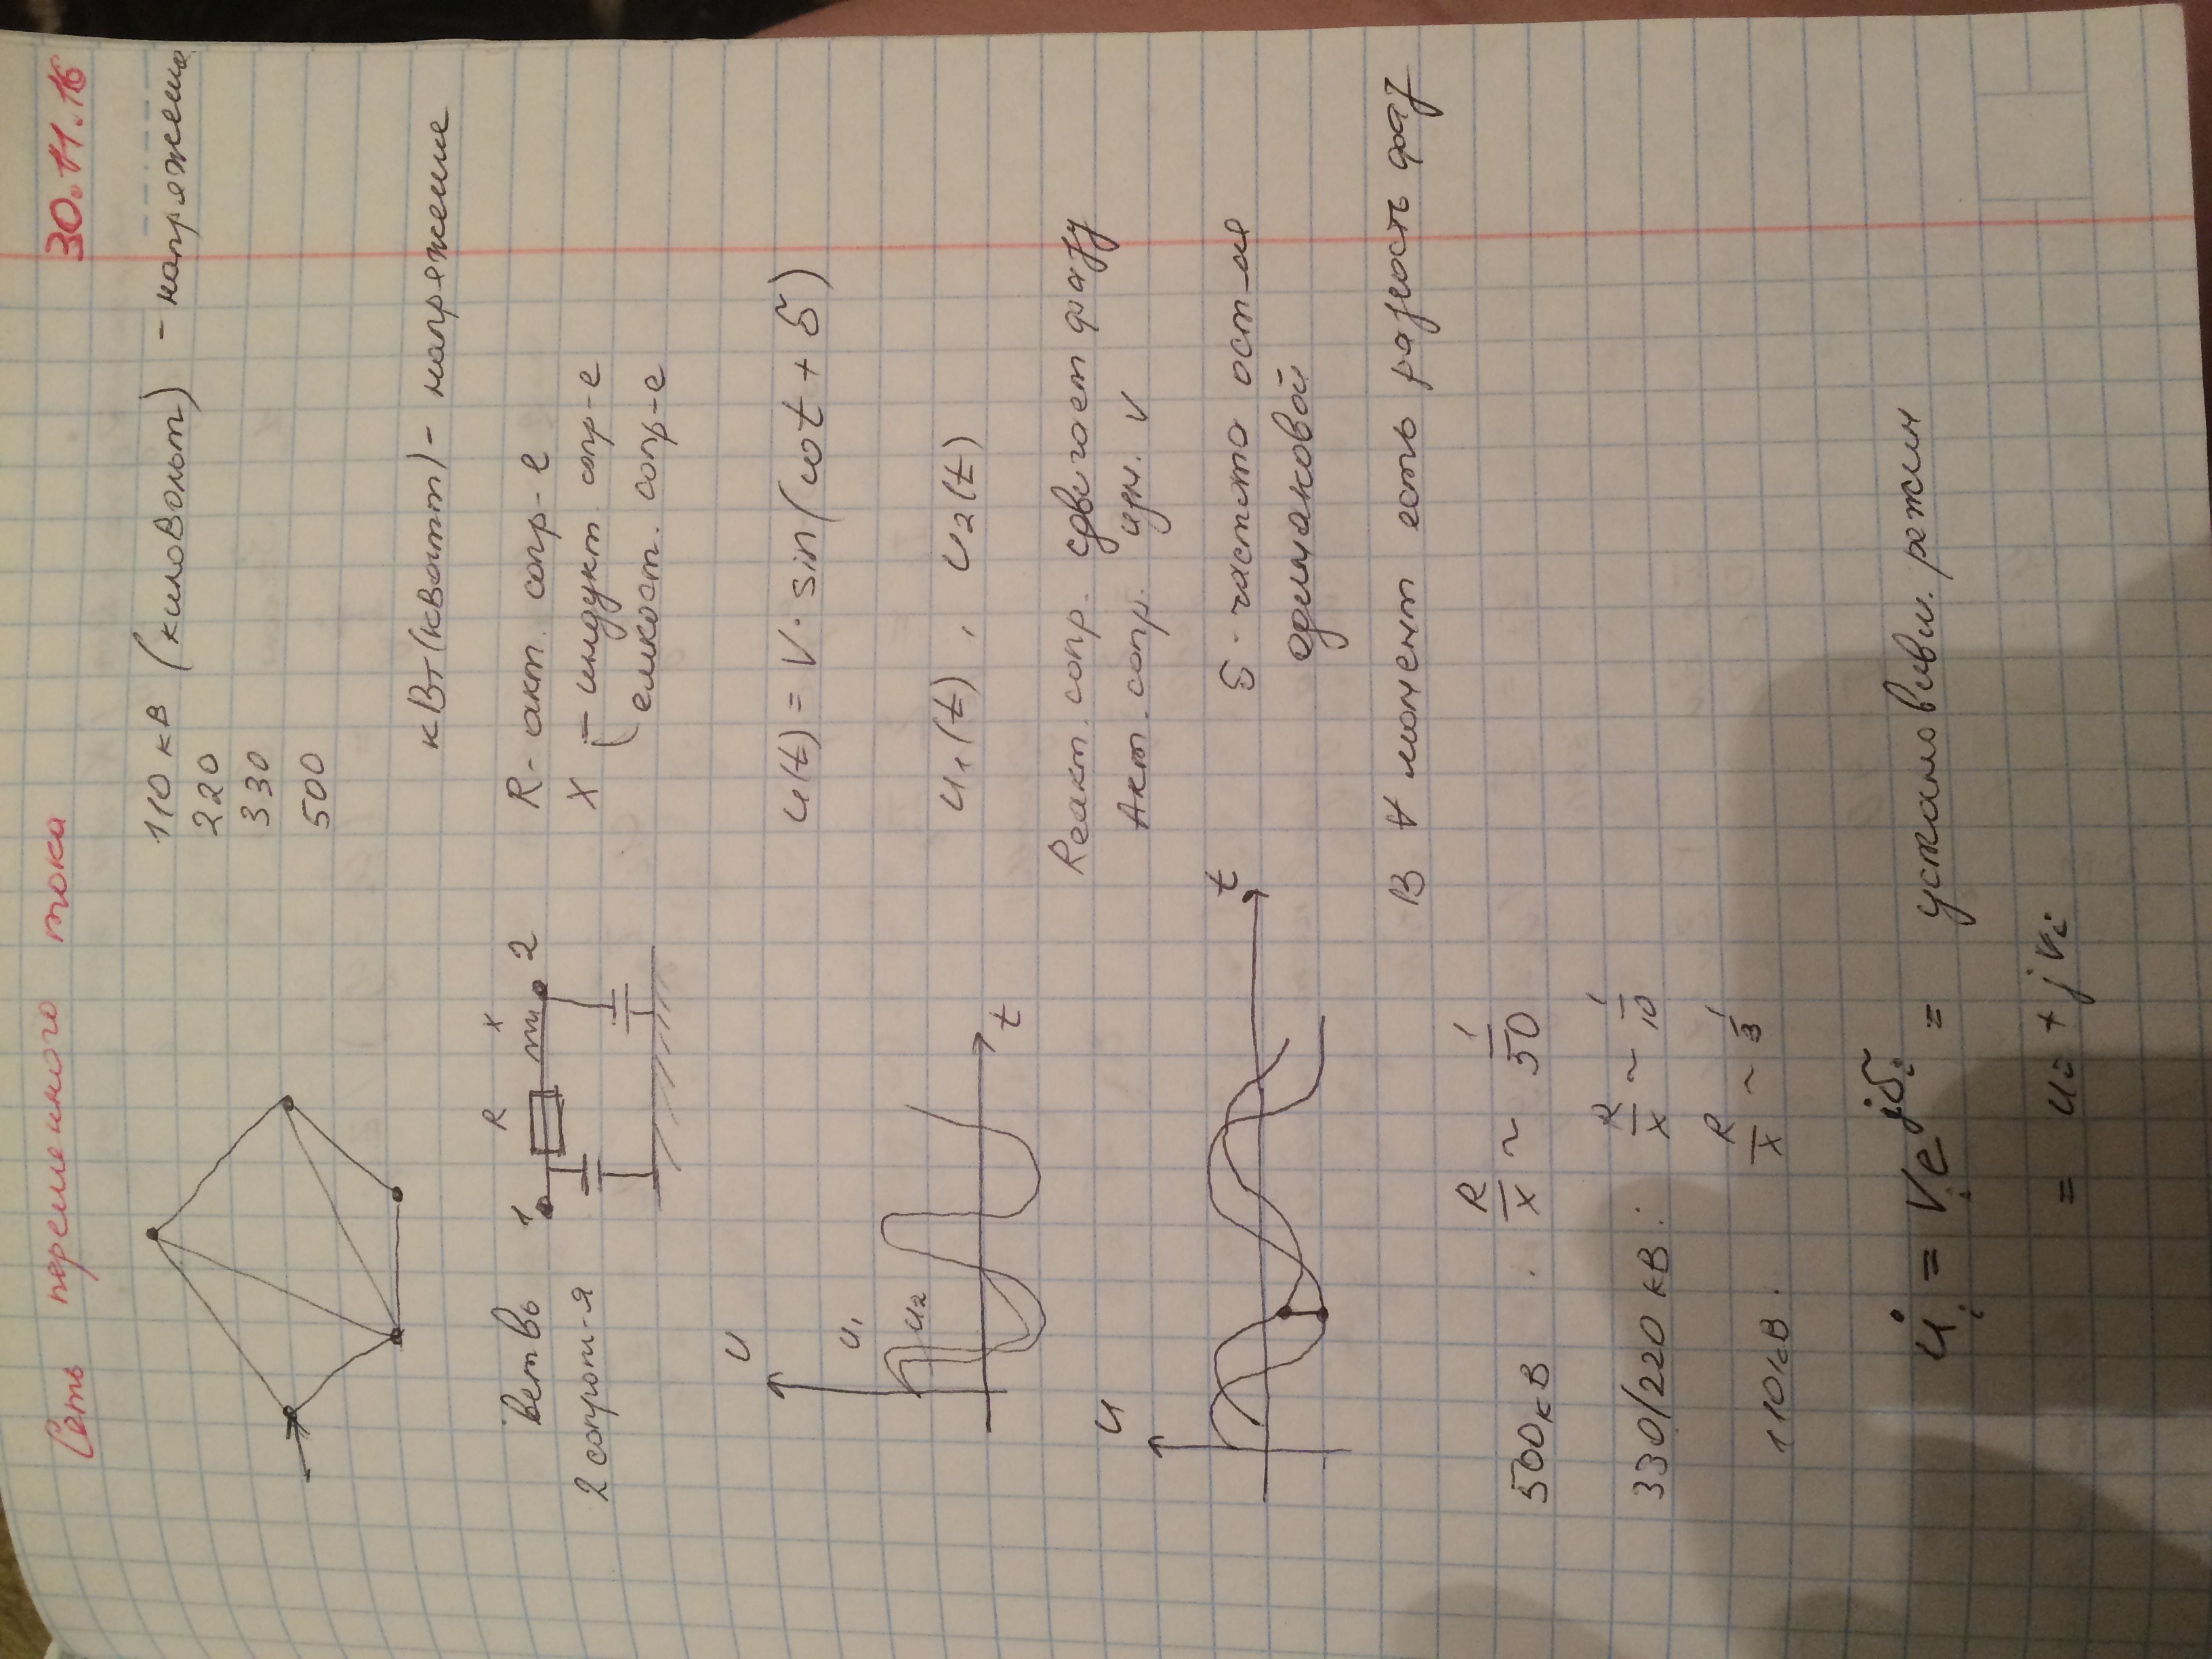 Сеть переменного тока 30.11.16
110 кВ (киловольт) - напряжение
220
330
500
кВт (кватт) - напряжение
ветвь 1 R X 2
2 сопрот-я
R - акт. сопр-е
X - индукт. сопр-е
емкост. сопр-е
U
u(t) = V · sin(ωt + δ)
u₁
u₂
t
u₁(t), u₂(t)
Реакт. сопр. сдвигает фазу
Акт. сопр. изм. V
U
t
δ - частота ост-ся
одинаковой
В ∀ момент есть разность фаз
500кВ R/X ~ 1/50
330/220 кВ: R/X ~ 1/10
110кВ. R/X ~ 1/3
u̇ᵢ = Vᵢe^jδᵢ = установивш. режим
= uᵢ + jvᵢ